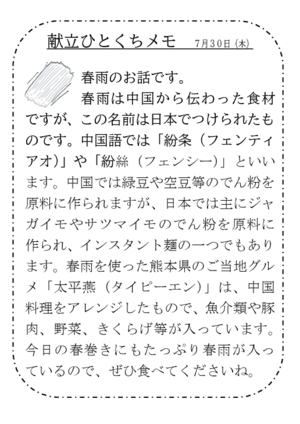 献立ひとくちメモ　7月30日(木)
春雨のお話です。
春雨は中国から伝わった食材
ですが、この名前は日本でつけられたも
のです。中国語では「紛条（フェンティ
アオ）」や「紛絲（フェンシー）」といい
ます。中国では緑豆や空豆等のでん粉を
原料に作られますが、日本では主にジャ
ガイモやサツマイモのでん粉を原料に
作られ、インスタント麺の一つでもあり
ます。春雨を使った熊本県のご当地グル
メ「太平燕（タイピーエン）」は、中国
料理をアレンジしたもので、魚介類や豚
肉、野菜、きくらげ等が入っています。
今日の春巻きにもたっぷり春雨が入っ
ているので、ぜひ食べてくださいね。